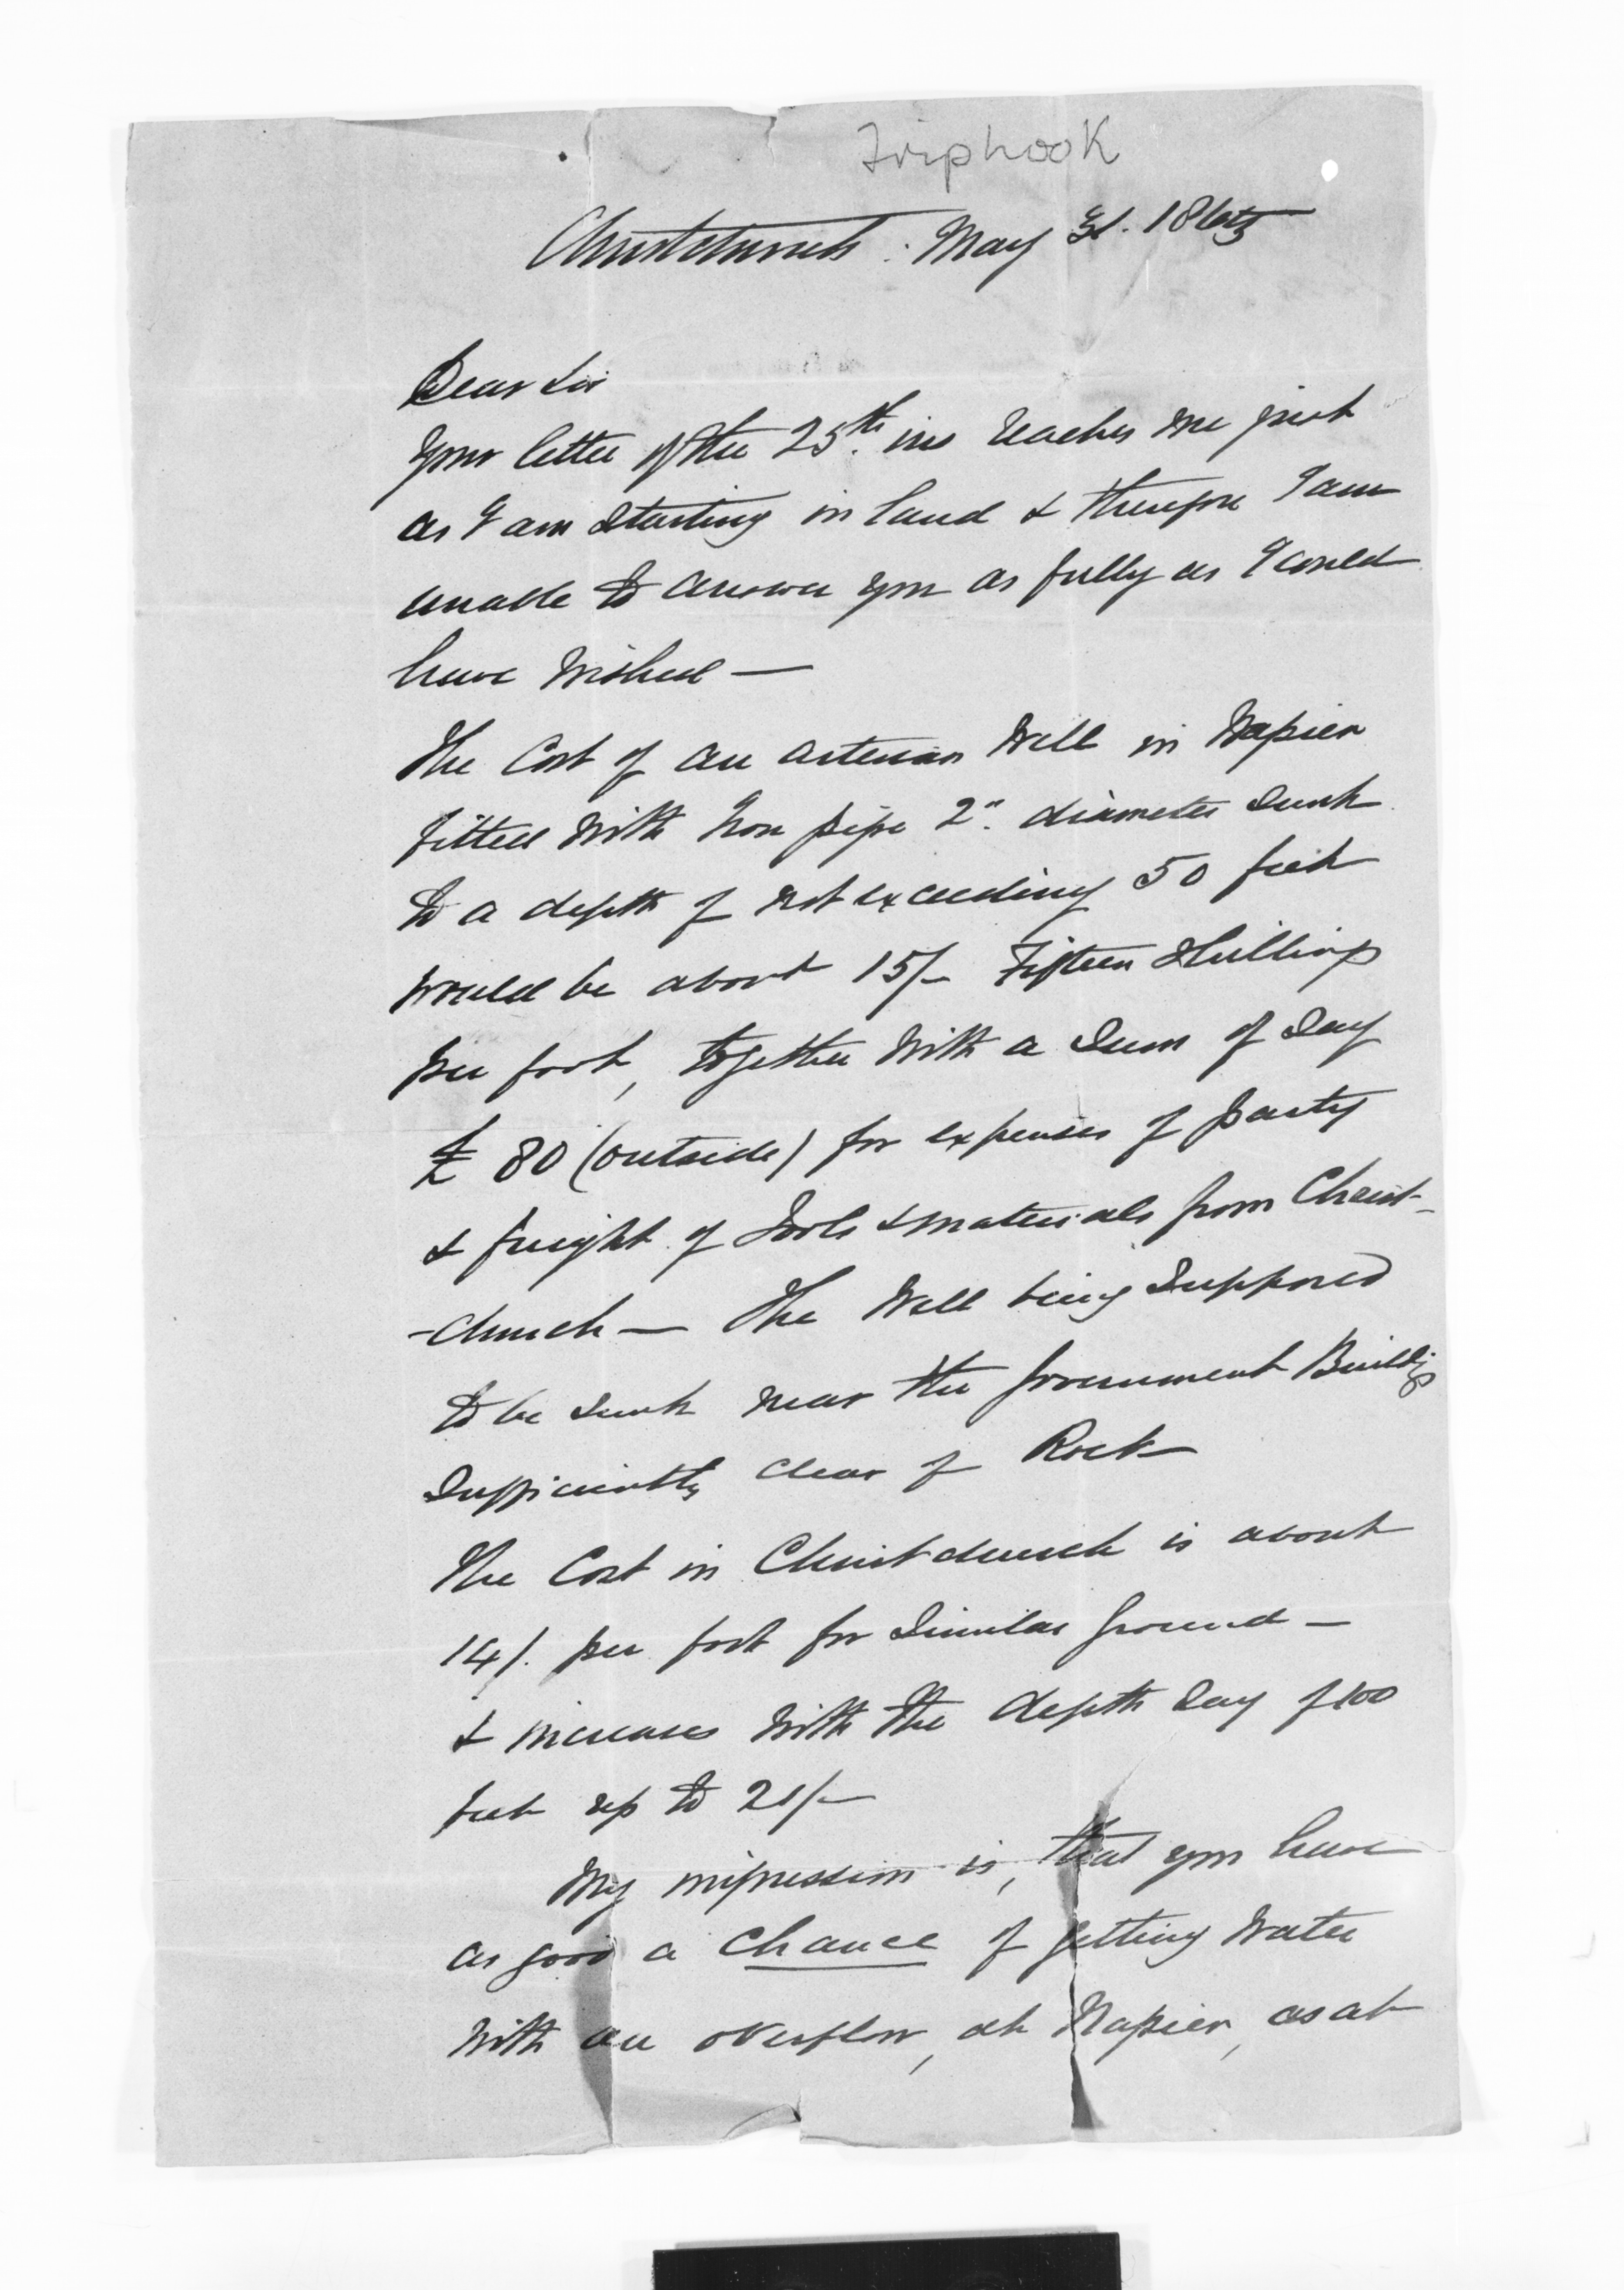 Triphook
Christchurch. May 31. 186
Dear Sir
Your letter of the 25th. ins reaches me just
as I am starting in land & therefore I am
unable to answer you as fully as I could
have wished —
The Cost of an artesian Well in Napier
fitted with Iron pipe 2". diameter sunk
to a depth of not exceeding 50 feet
would be about 15/- Fifteen Shillings
per foot, together with a Sum of Say
£ 80 (outside) for expenses of party
& freight of Tools & materials from Christ-
-church — The Well being Supposed
to be sunk near the Government Buildgs
Sufficiently clear of Rock
The Cost in Christchurch is about
14/. per foot for Similar ground —
& increases with the depth Say of 100
feet up to 21/-
My impression is, that you have
as good a chance of getting Water
with an overflow, at Napier, as at